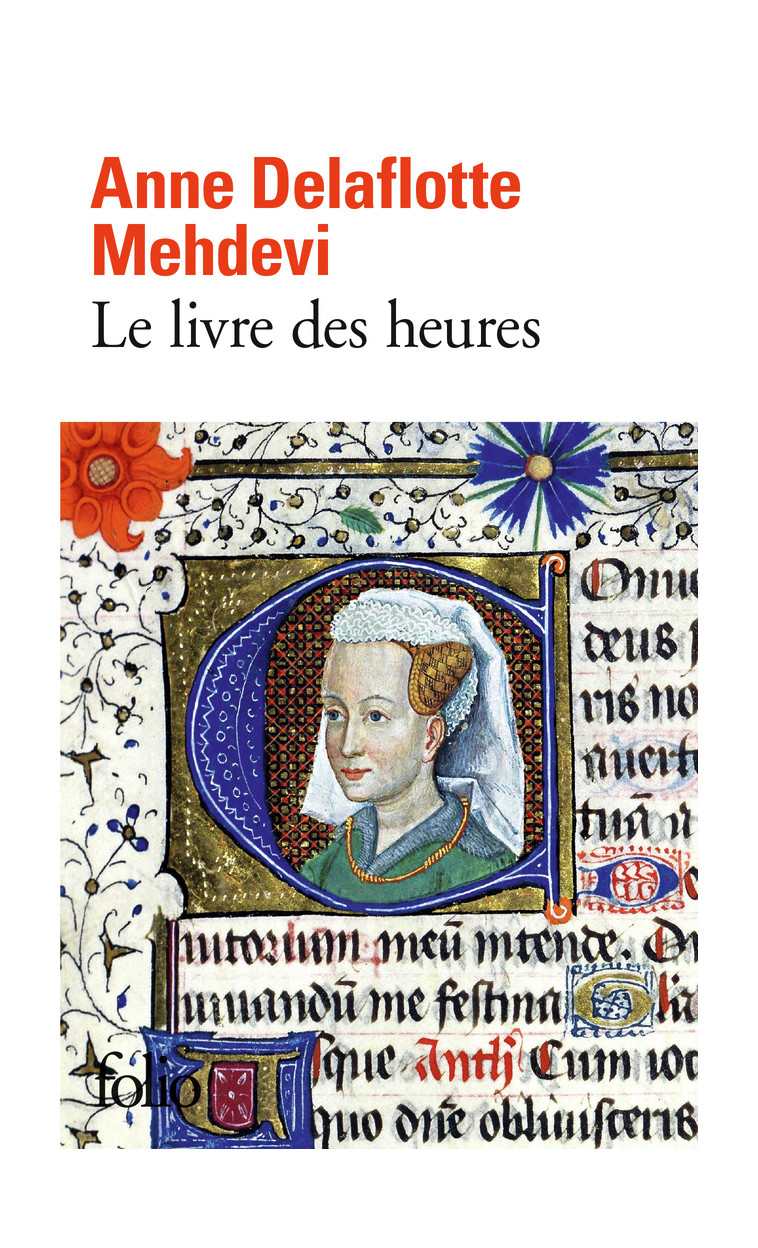 Anne Delaflotte
Mehdevi
Le livre des heures
Onue
deus
ris no
auert
tuā u
iutorium meū intende. On
iuuandū me festina Gła
Usque Anth Cum uoc
quo dn̄e obliuisceris
folio